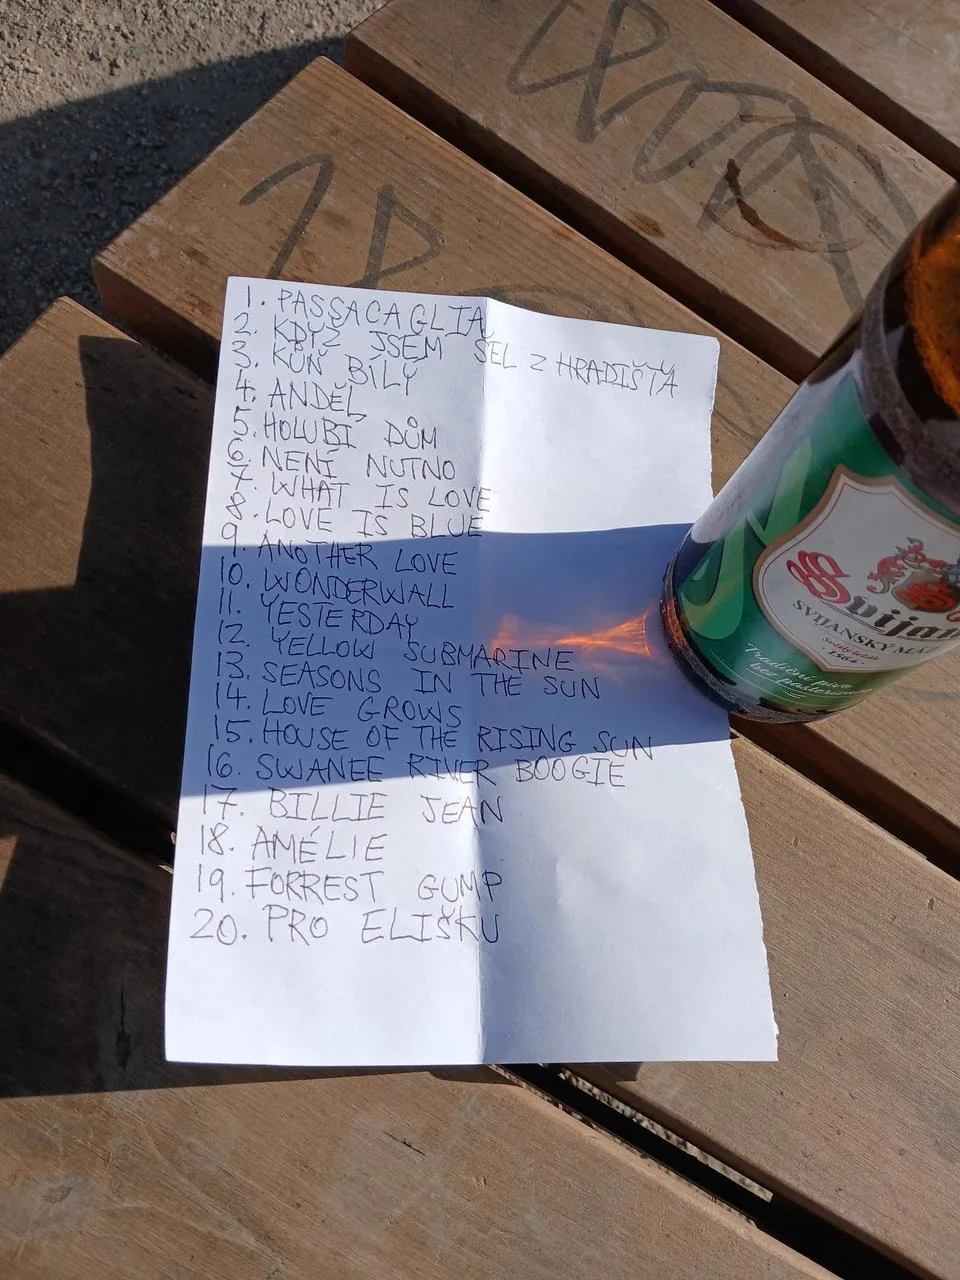 1. PASSACAGLIA
2. KDYŽ JSEM ŠEL Z HRADIŠŤA
3. KŮŇ BÍLÝ
4. ANDĚL
5. HOLUBÍ DŮM
6. NENÍ NUTNO
7. WHAT IS LOVE
8. LOVE IS BLUE
9. ANOTHER LOVE
10. WONDERWALL
11. YESTERDAY
12. YELLOW SUBMARINE
13. SEASONS IN THE SUN
14. LOVE GROWS
15. HOUSE OF THE RISING SUN
16. SWANEE RIVER BOOGIE
17. BILLIE JEAN
18. AMÉLIE
19. FORREST GUMP
20. PRO ELIŠKU
SVIJANSKÝ
1564
Tradiční pivo
bez